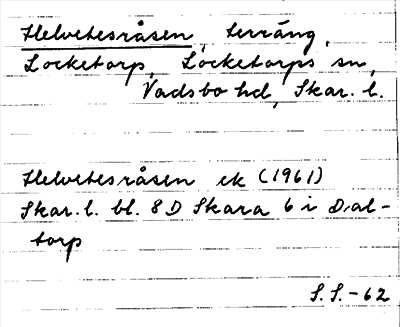 Helvetesråsen, terräng,
Locketorp, Locketorps sn,
Vadsbo hd, Skar. l.
Helvetesråsen ek (1961)
Skar. l. bl. 8D Skara 6 i Dal-
torp
S.S.-62